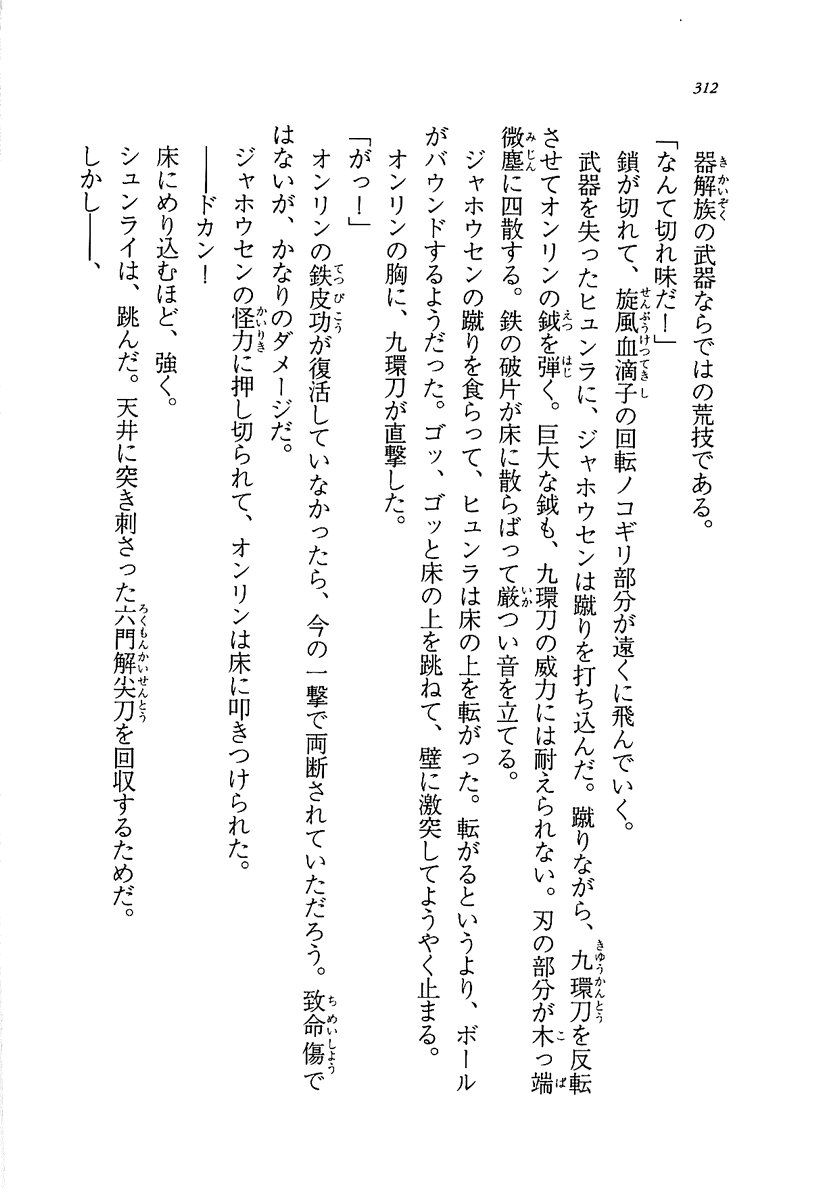 312
器解族の武器ならではの荒技である。
「なんて切れ味だ！」
鎖が切れて、旋風血滴子の回転ノコギリ部分が遠くに飛んでいく。
武器を失ったヒュンラに、ジャホウセンは蹴りを打ち込んだ。蹴りながら、九環刀を反転
させてオンリンの鉞を弾く。巨大な鉞も、九環刀の威力には耐えられない。刃の部分が木っ端
微塵に四散する。鉄の破片が床に散らばって厳つい音を立てる。
ジャホウセンの蹴りを食らって、ヒュンラは床の上を転がった。転がるというより、ボール
がバウンドするようだった。ゴッ、ゴッと床の上を跳ねて、壁に激突してようやく止まる。
オンリンの胸に、九環刀が直撃した。
「がっ！」
オンリンの鉄皮功が復活していなかったら、今の一撃で両断されていただろう。致命傷で
はないが、かなりのダメージだ。
ジャホウセンの怪力に押し切られて、オンリンは床に叩きつけられた。
――ドカン！
床にめり込むほど、強く。
シュンライは、跳んだ。天井に突き刺さった六門解尖刀を回収するためだ。
しかし――、